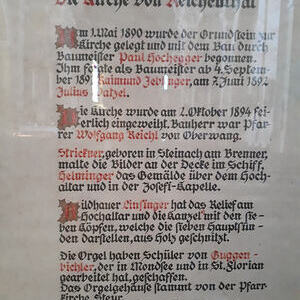 Die Kirche von Reichenthal
Am 1. Mai 1890 wurde der Grundstein zur
Kirche gelegt und mit dem Bau durch
Baumeister Paul Hochegger begonnen.
Ihm folgte als Baumeister ab 4. Septem-
ber 1891 Raimund Zeblinger, am 7. Juni 1892
Julius Vatzel.
Die Kirche wurde am 2. Oktober 1894 fei-
erlich eingeweiht. Bauherr war Pfar-
rer Wolfgang Reichl von Oberwang.
Strickner, geboren in Steinach am Brenner,
malte die Bilder an der Decke im Schiff,
Helminger das Gemälde über dem Hoch-
altar und in der Josefi-Kapelle.
Bildhauer Linsinger hat das Relief am
Hochaltar und die Kanzel mit den sie-
ben Köpfen, welche die sieben Hauptsün-
den darstellen, aus Holz geschnitzt.
Die Orgel haben Schüler von Guggen-
bichler, der in Mondsee und in St. Florian
gearbeitet hat, geschaffen.
Das Orgelgehäuse stammt von der Pfarr-
kirche Steyr.